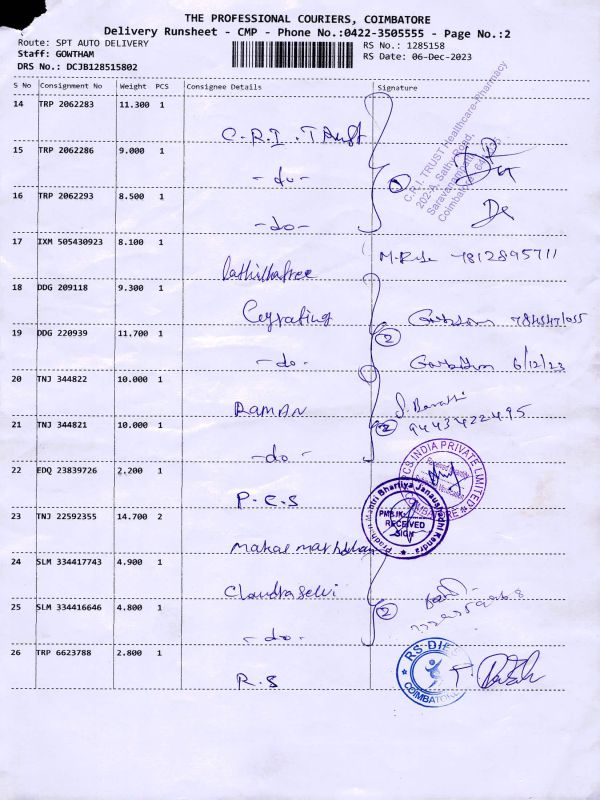 THE PROFESSIONAL COURIERS, COIMBATORE
Delivery Runsheet - CMP - Phone No.:0422-3505555 - Page No.:2
Route: SPT AUTO DELIVERY
RS No.: 1285158
Staff: GOWTHAM
RS Date: 06-Dec-2023
DRS No.: DCJB128515802
S No Consignment No Weight PCS Consignee Details Signature
14 TRP 2062283 11.300 1
C.R.I. Trust
C.R.I-TRUST Healthcare-Pharmacy
202-A, Sathy Road,
15 TRP 2062286 9.000 1
-do-
16 TRP 2062293 8.500 1
-do-
17 IXM 505430923 8.100 1
7812895711
18 DDG 209118 9.300 1
19 DDG 220939 11.700 1
2
-do-
6/12/23
20 TNJ 344822 10.000 1
RAMAN
21 TNJ 344821 10.000 1
2
9443422495
-do-
22 EDQ 23839726 2.200 1
PCS INDIA PRIVATE LIMITED
P.C.S
23 TNJ 22592355 14.700 2
Pradhan Mantri Bhartiya Janaushadhi Kendra
RECEIVED
SIGN
24 SLM 334417743 4.900 1
Chandraselvi
25 SLM 334416646 4.800 1
2
-do-
26 TRP 6623788 2.800 1
COIMBATORE
R.S